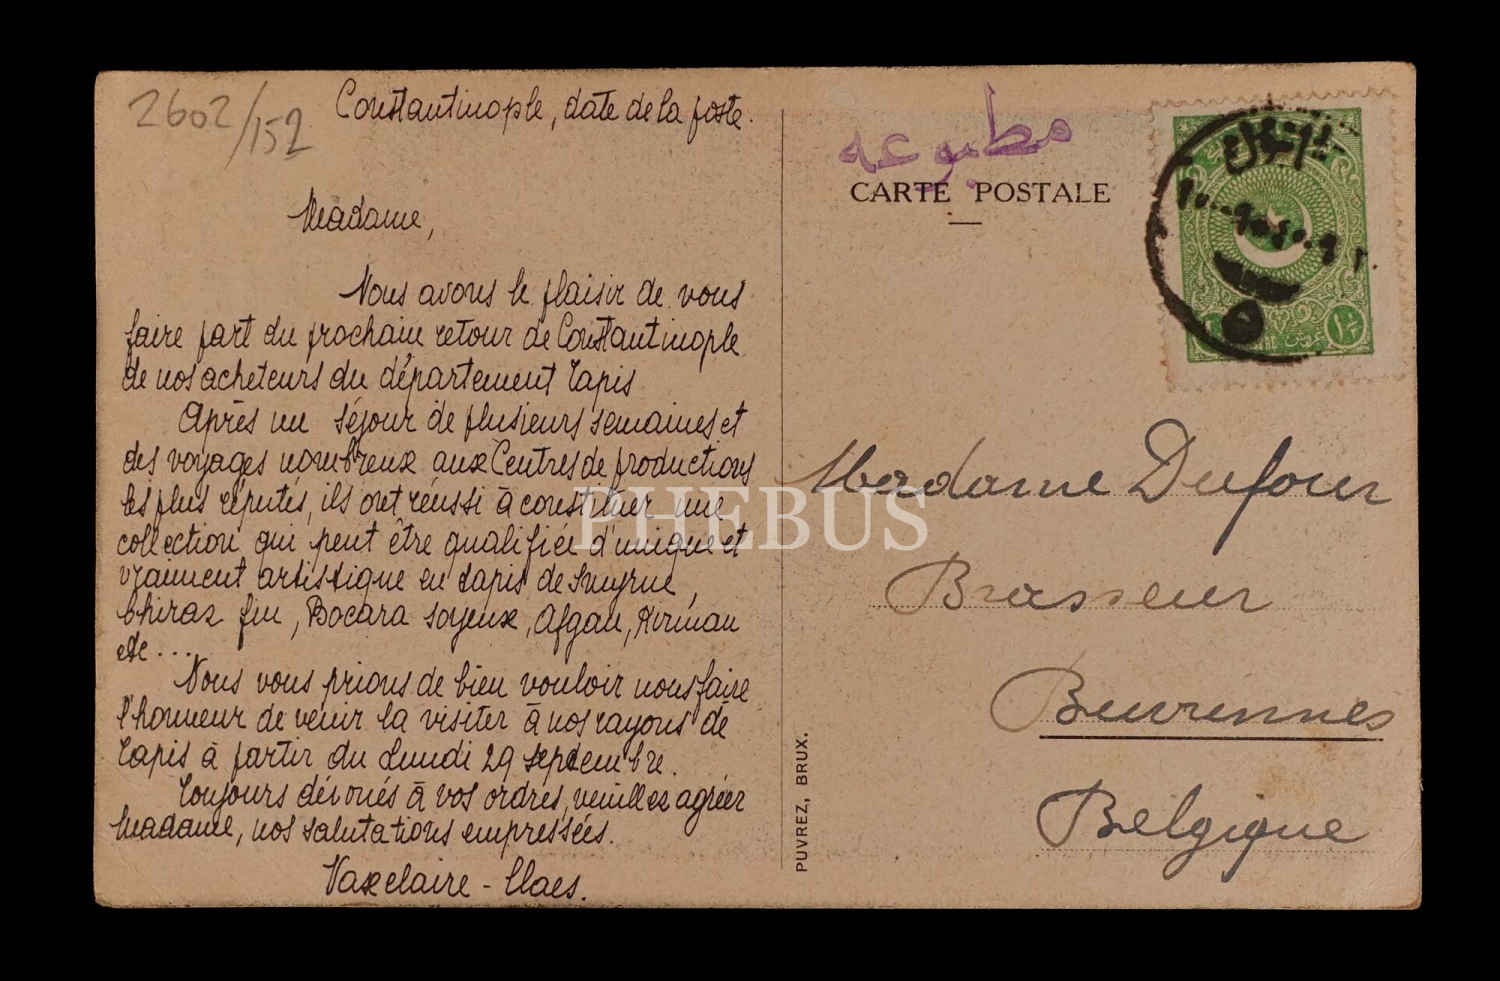 2602/152
Constantinople, date de la poste.
Madame,
Nous avons le plaisir de vous
faire part du prochain retour de Constantinople
de nos acheteurs du département Tapis
Après un séjour de plusieurs semaines et
des voyages nombreux aux Centres de productions
les plus réputés, ils ont réussi à constituer une
collection qui peut être qualifiée d'unique et
vraiment artistique en tapis de Smyrne,
Chiraz fin, Bocara soyeux, Afgan, Kirman
etc...
Nous vous prions de bien vouloir nous faire
l'honneur de venir la visiter à nos rayons de
Tapis à partir du Lundi 29 septembre.
Toujours dévoués à vos ordres, veuillez agréer
Madame, nos salutations empressées.
Vaxelaire - Claes.
PUVREZ, BRUX.
مطبوعه
CARTE POSTALE
Madame Dufour
Brasseur
Buvrinnes
Belgique
PHEBUS